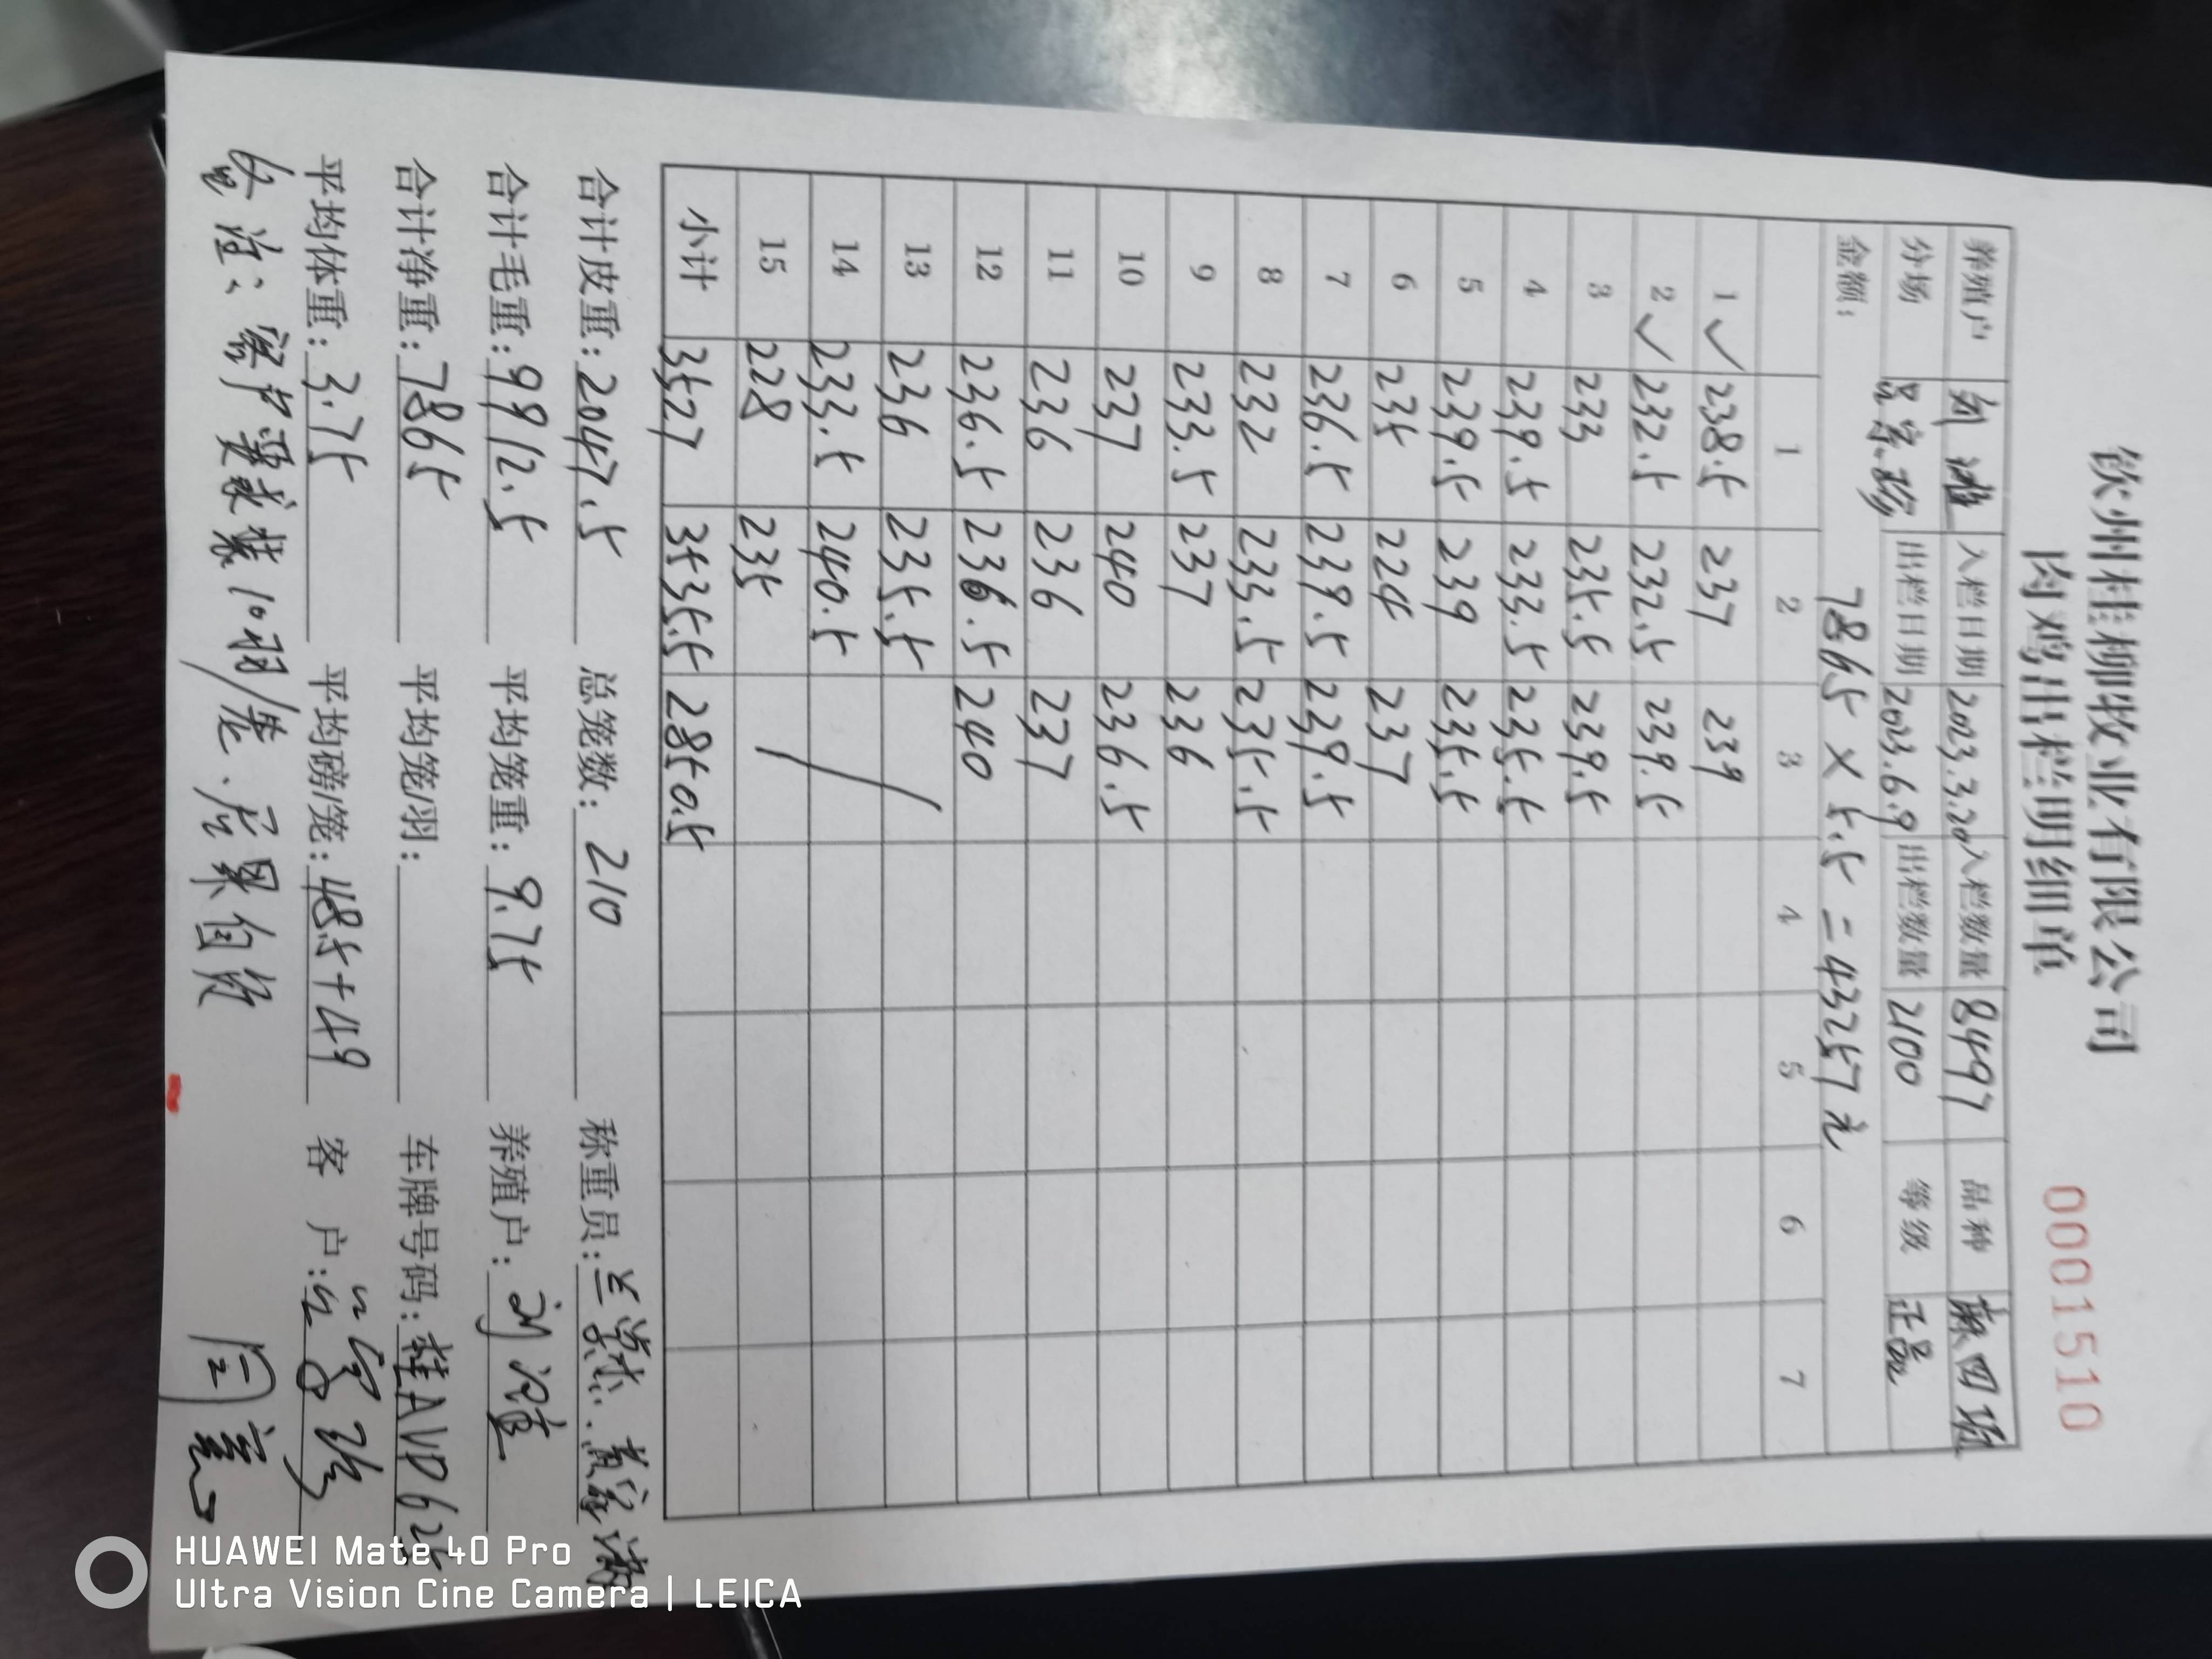 钦州桂柳牧业有限公司
肉鸡出栏明细单
0001510
养殖户 刘 入栏日期 2023.3.20 入栏数量 8497 品种 麻四班
分场 吕家珍 出栏日期 2023.6.9 出栏数量 2100 等级 正品
金额: 7865 × 5.5 = 43257元
1 2 3 4 5 6 7
1 ✓ 238.5 237 239
2 ✓ 232.5 232.5 239.5
3 233 235.5 239.5
4 239.5 233.5 235.5
5 239.5 239 235.5
6 235 224 237
7 236.5 239.5 239.5
8 232 233.5 235.5
9 233.5 237 236
10 237 240 236.5
11 236 236 237
12 236.5 236.5 240
13 236 235.5
14 233.5 240.5
15 228 235
小计 3527 3535.5 2850.5
合计皮重: 2047.5 总笼数: 210 称重员:
合计毛重: 9912.5 平均笼重: 9.75 养殖户: 刘
合计净重: 7865 平均笼/羽: 车牌号码: 桂AVD625
平均体重: 3.75 平均磅/笼: 48.5+49 客 户:
备注: 客户要求装10羽/笼.后果自负 同意
HUAWEI Mate 40 Pro
Ultra Vision Cine Camera | LEICA